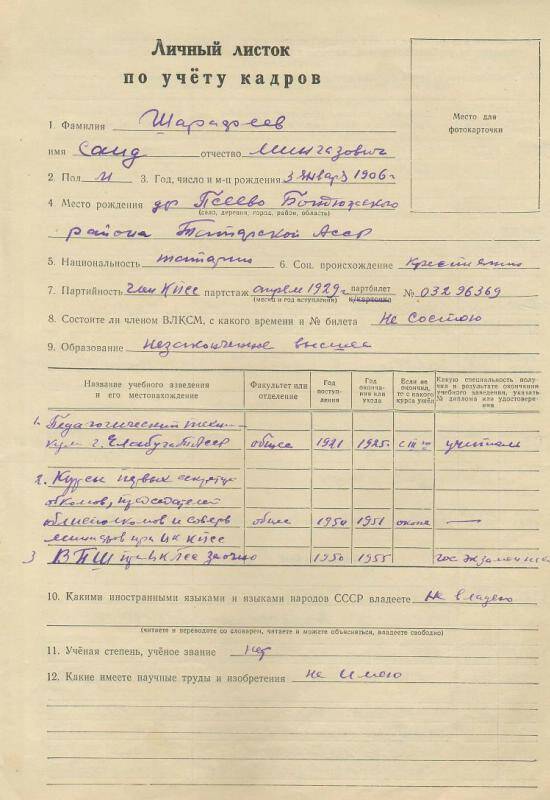 Личный листок
по учёту кадров
Место для
фотокарточки
1. Фамилия Шарафеев
имя Саид отчество Мингазович
2. Пол М 3. Год, число и м-ц рождения 3 января 1906 г
4. Место рождения др Псеево Бондюжского
(село, деревня, город, район, область)
района Татарской Асср
5. Национальность татарин 6. Соц. происхождение крестьянин
7. Партийность член КПСС партстаж апрель 1929 г партбилет № 03296369
(месяц и год вступления) к/карточка
8. Состоите ли членом ВЛКСМ, с какого времени и № билета Не состою
9. Образование незаконченное высшее
Название учебного заведения и его местонахождение Факультет или отделение Год поступления Год окончания или ухода Если не окончил, то с какого курса ушёл Какую специальность получил в результате окончания учебного заведения, указать № диплома или удостоверения
1. Педагогический техни-
кум г. Елабуга ТАССР общее 1921 1925 с III учителя
2. Курсы первых секретарей
обкомов, председателей
облисполкомов и совета
министров при ЦК КПСС общее 1950 1951 оконч —
3 ВПШ при ЦК КПСС заочно 1950 1955 гос. экзамен
10. Какими иностранными языками и языками народов СССР владеете не владею
(читаете и переводите со словарем, читаете и можете объясняться, владеете свободно)
11. Учёная степень, учёное звание нет
12. Какие имеете научные труды и изобретения не имею